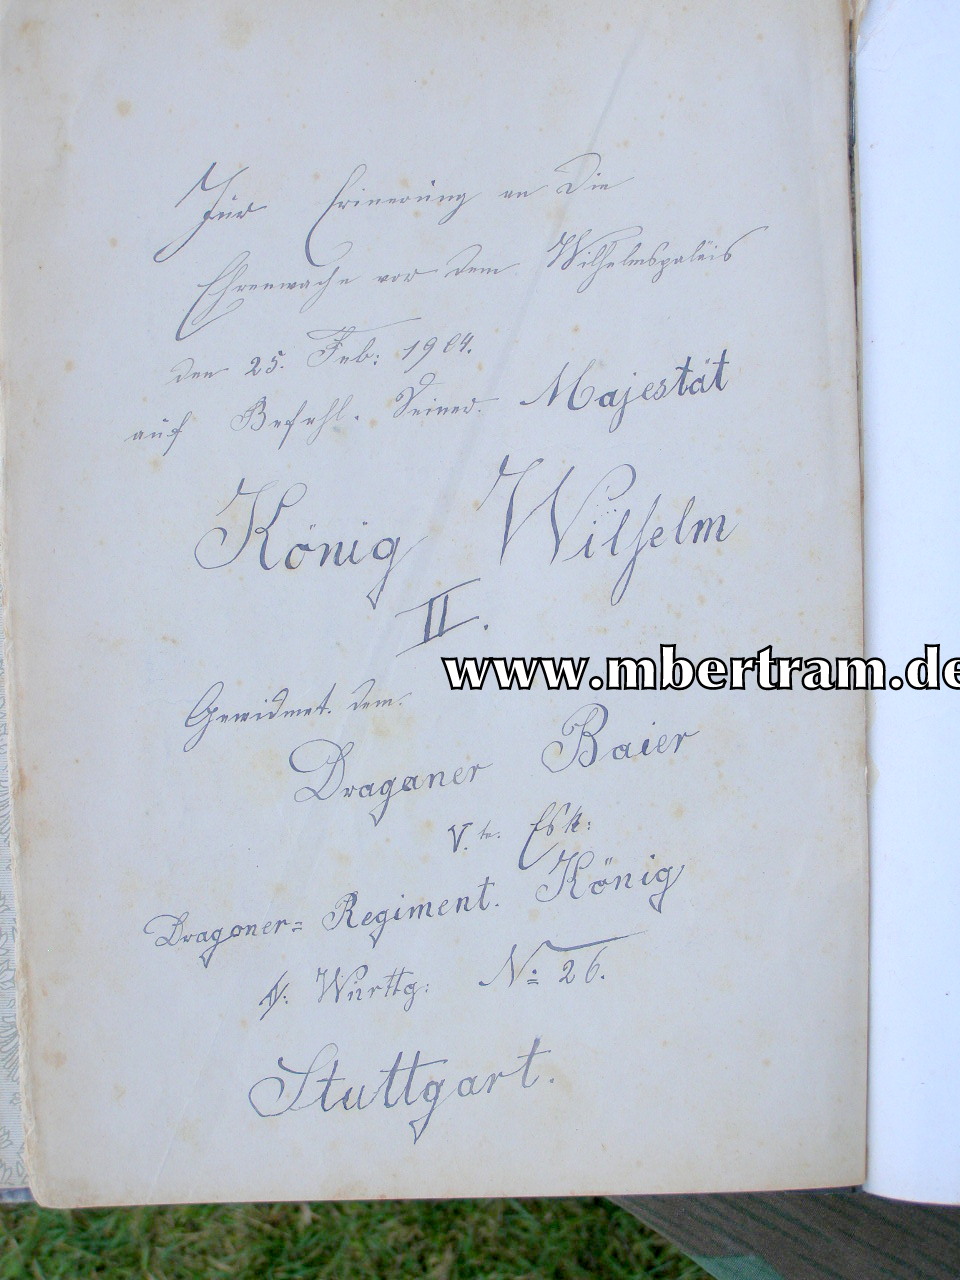 Zur Erinerung an Die
Ehrenwache vor dem Wilhelmspalais
den 25. Feb: 1904.
auf Befehl. Seiner. Majestät
König Wilhelm
II.
www.mbertram.de
Gewidmet. dem.
Dragoner Baier
V.te. Esk:
Dragoner= Regiment. König
Württg: No 26.
Stuttgart.